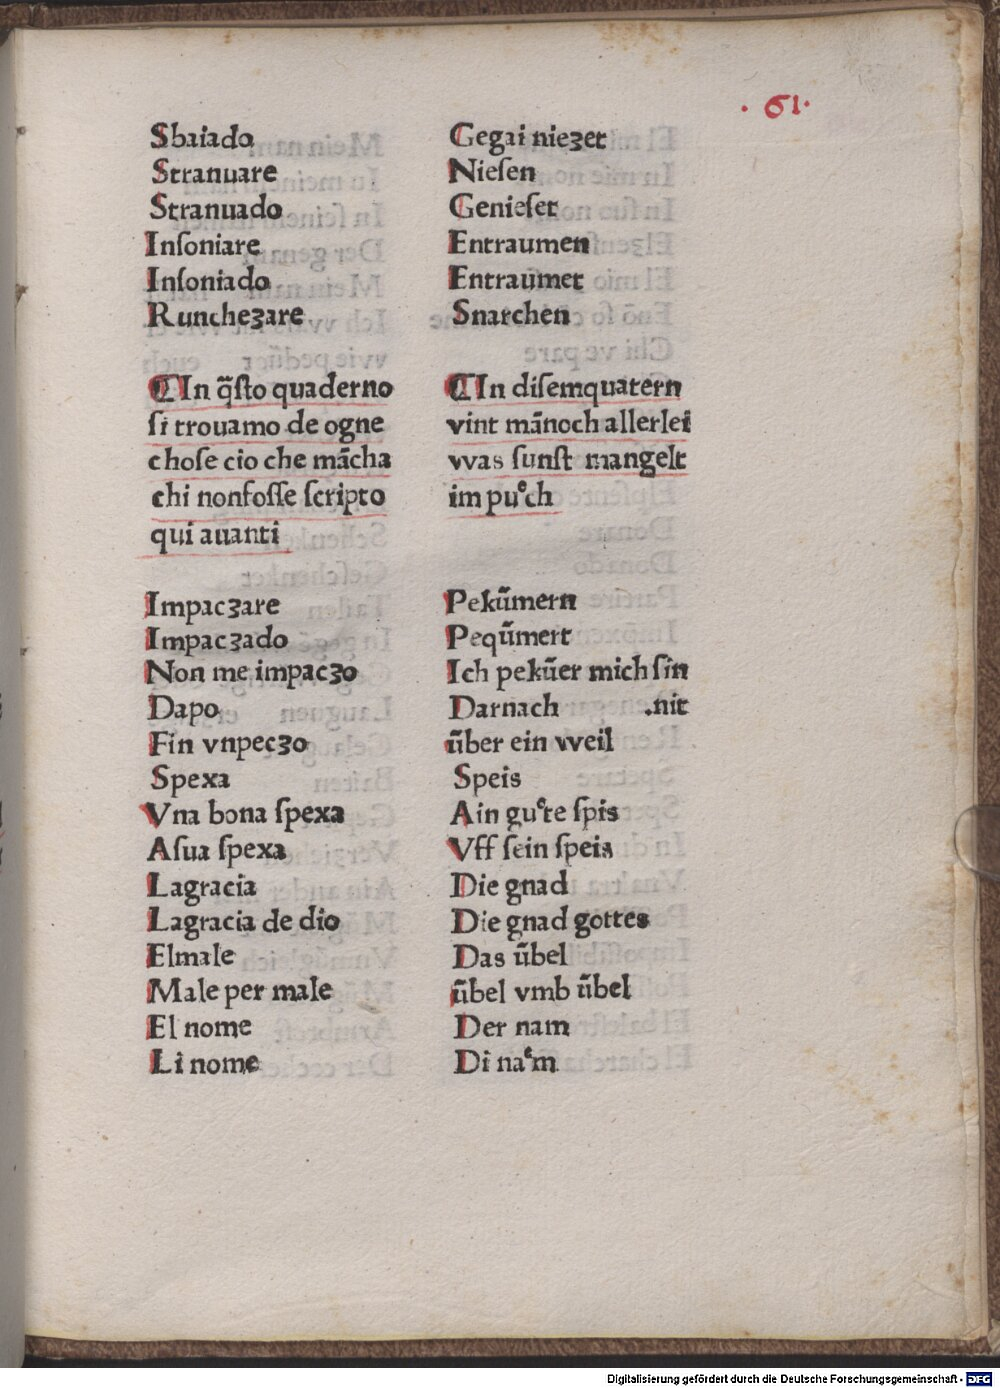 · 61 ·
Sbaiado Gegai nieʒet
Stranuare Nieſen
Stranuado Genieſet
Inſoniare Entraumen
Inſoniado Entraumet
Runcheʒare Snarchen
¶In q̄ſto quaderno
ſi trouamo de ogne
choſe cio che mācha
chi nonfoſſe ſcripto
qui auanti
¶In diſemquatern
vint mānoch allerlei
vvas ſunſt mangelt
im puͤch
Impacʒare Pekūmern
Impacʒado Peqūmert
Non me impacʒo Ich pekūer mich ſin
Dapo Darnach .nit
Fin vnpecʒo ūber ein vveil
Spexa Speis
Vna bona ſpexa Ain guͤte ſpis
Aſua ſpexa Vff ſein ſpeis
Lagracia Die gnad
Lagracia de dio Die gnad gottes
Elmale Das ūbel
Male per male ūbel vmb ūbel
El nome Der nam
Li nome Di naͤm
Digitalisierung gefördert durch die Deutsche Forschungsgemeinschaft - DFG